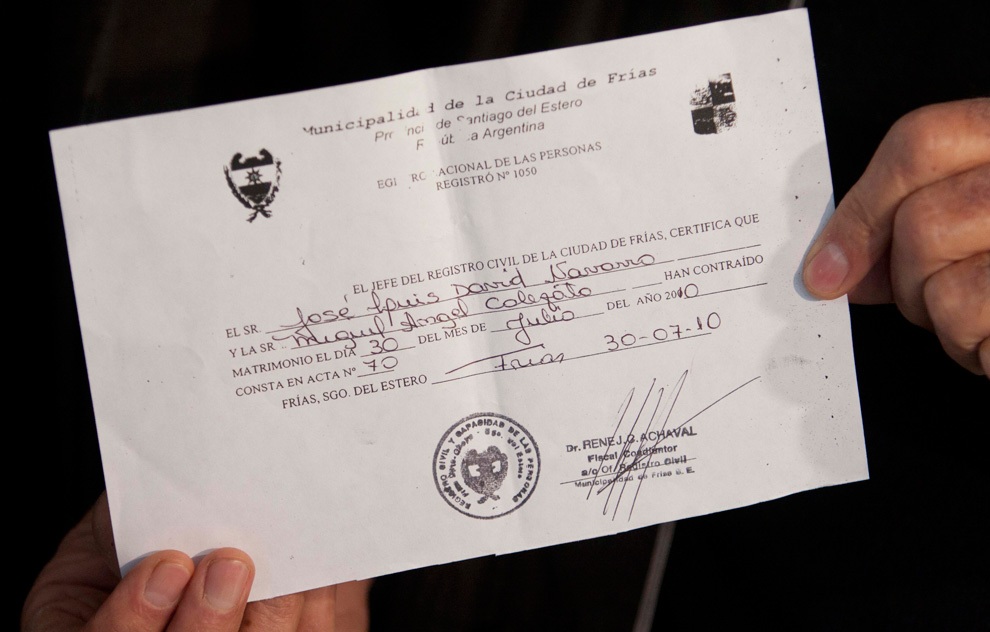 Municipalidad de la Ciudad de Frías
Provincia de Santiago del Estero
República Argentina
REGISTRO NACIONAL DE LAS PERSONAS
REGISTRÓ Nº 1050
EL JEFE DEL REGISTRO CIVIL DE LA CIUDAD DE FRÍAS, CERTIFICA QUE
EL SR. José Luis David Navarro
Y LA SR Miguel Angel Calefato HAN CONTRAÍDO
MATRIMONIO EL DÍA 30 DEL MES DE Julio DEL AÑO 2010
CONSTA EN ACTA Nº 70
FRÍAS, SGO. DEL ESTERO Frias 30-07-10
REGISTRO CIVIL Y CAPACIDAD DE LAS PERSONAS
Sgo. del Estero
Dr. RENE J.G. ACHAVAL
Fiscal
a/c Of. Registro Civil
Municipalidad de Frias S. E.